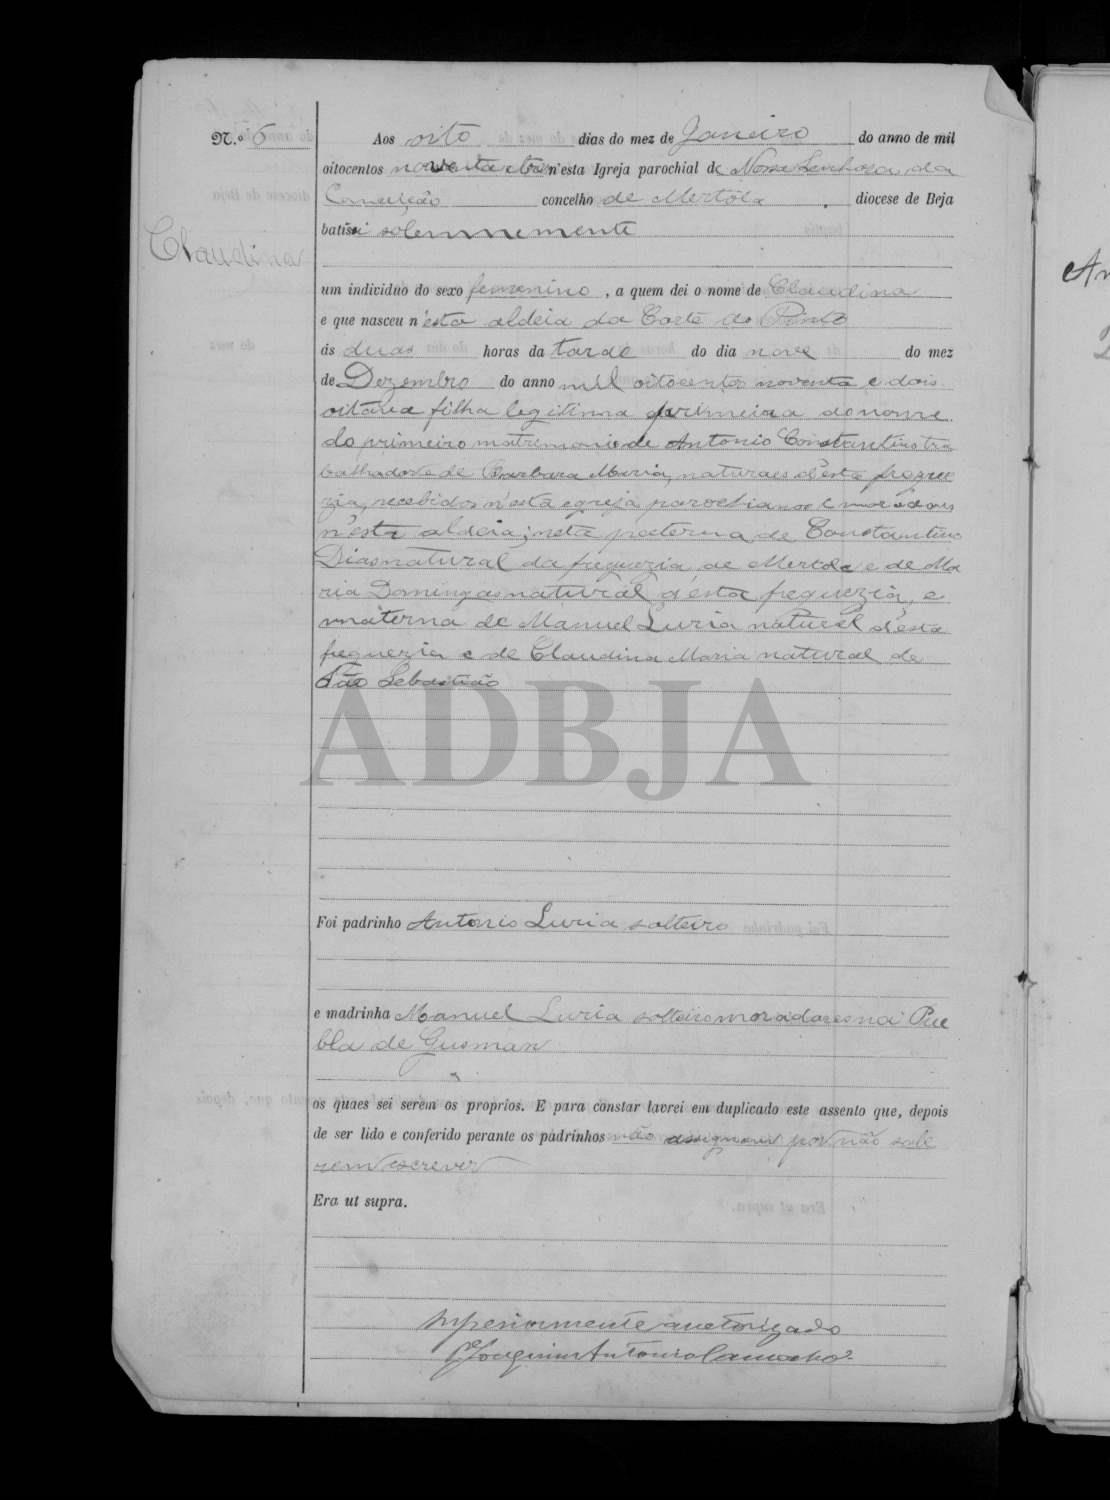 N.º 6
Aos oito dias do mez de Janeiro do anno de mil
oitocentos noventa e tres n'esta Igreja parochial de Nossa Senhora da
Conceição concelho de Mertola diocese de Beja
batisei solemnemente
Claudina
um individuo do sexo femenino, a quem dei o nome de Claudina
e que nasceu n'esta aldeia da Corte do Pinto
ás duas horas da tarde do dia nove do mez
de Dezembro do anno mil oitocentos noventa e dois
oitava filha legitima primeira do nome
do primeiro matrimonio de Antonio Constantino tra
balhador e de Barbara Maria, naturaes d'esta fregue
zia, recebidos n'esta egreja parochial e moradores
n'esta aldeia; neta paterna de Constantino
Dias natural da freguezia de Mertola e de Ma
ria Domingas natural d'esta freguezia, e
materna de Manuel Luria natural d'esta
freguezia e de Claudina Maria natural de
São Sebastião
ADBJA
Foi padrinho Antonio Luria solteiro
e madrinha Manuel Luria solteiro moradores na Pue
bla de Gusman
os quaes sei serem os proprios. E para constar lavrei em duplicado este assento que, depois
de ser lido e conferido perante os padrinhos não assignam por não sabe
rem escrever
Era ut supra.
Superiormente auctorizado
Joaquim Antonio Camacho